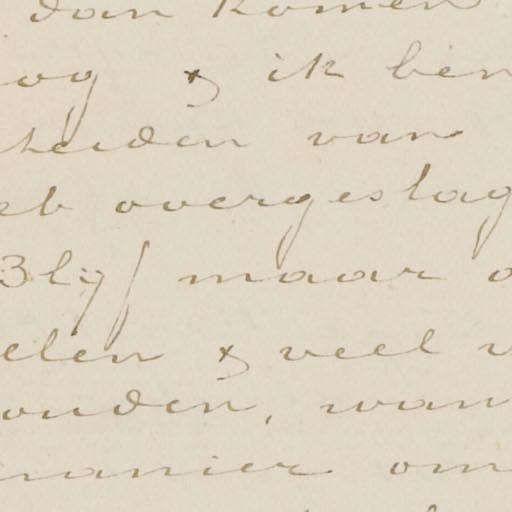 dan komen
og & ik ben
heiden van
eb overgeslag
Blijf maar o
elen & veel v
ouden, wan
manier om